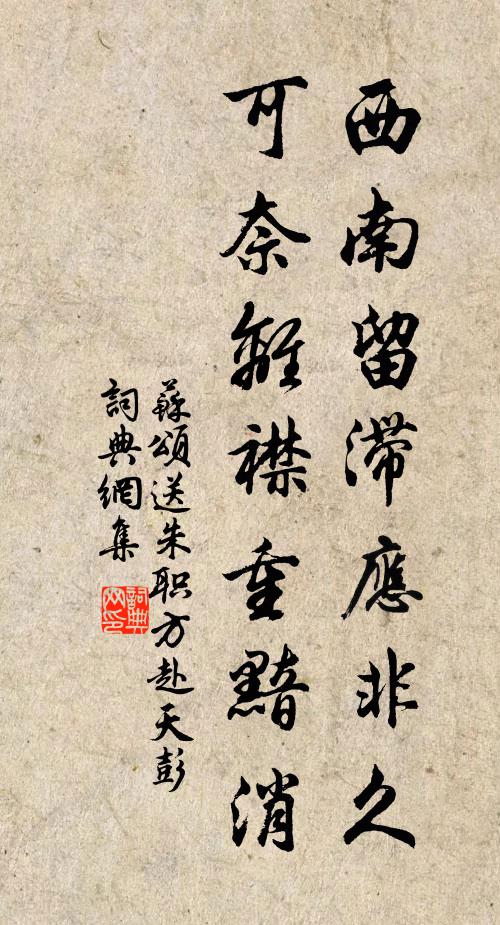 西南留滯應非久
可奈離襟重黯消
蘇頌送朱职方赴天彭
詞典網集
詞典网印